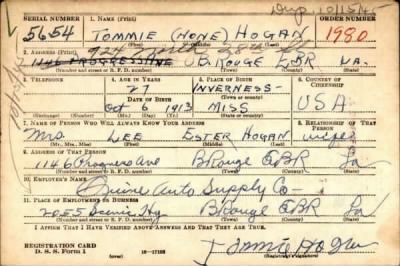 Dup. 10/15/45
SERIAL NUMBER 1. NAME (Print) ORDER NUMBER
5654 TOMMIE (NONE) HOGAN 1980
(First) (Middle) (Last)
2. ADDRESS (Print)
1146 PROGRESS AVE B. ROUGE EBR LA.
(Number and street or R. F. D. number) (Town) (County) (State)
3. TELEPHONE 4. AGE IN YEARS 5. PLACE OF BIRTH 6. COUNTRY OF CITIZENSHIP
27 INVERNESS-
DATE OF BIRTH (Town or county)
Oct 6 1913 MISS USA
(Exchange) (Number) (Mo.) (Day) (Yr.) (State or country)
7. NAME OF PERSON WHO WILL ALWAYS KNOW YOUR ADDRESS 8. RELATIONSHIP OF THAT PERSON
Mrs LEE ESTER HOGAN wife
(Mr., Mrs., Miss) (First) (Middle) (Last)
9. ADDRESS OF THAT PERSON
1146 Progress Ave B Rouge EBR La
(Number and street or R. F. D. number) (Town) (County) (State)
10. EMPLOYER'S NAME
Auto Supply Co-
11. PLACE OF EMPLOYMENT OR BUSINESS
2055 Scenic Hy B Rouge EBR La
(Number and street or R. F. D. number) (Town) (County) (State)
I AFFIRM THAT I HAVE VERIFIED ABOVE ANSWERS AND THAT THEY ARE TRUE.
REGISTRATION CARD
D. S. S. Form 1 16-17105 Tommie Hogan
(Registrant's signature)